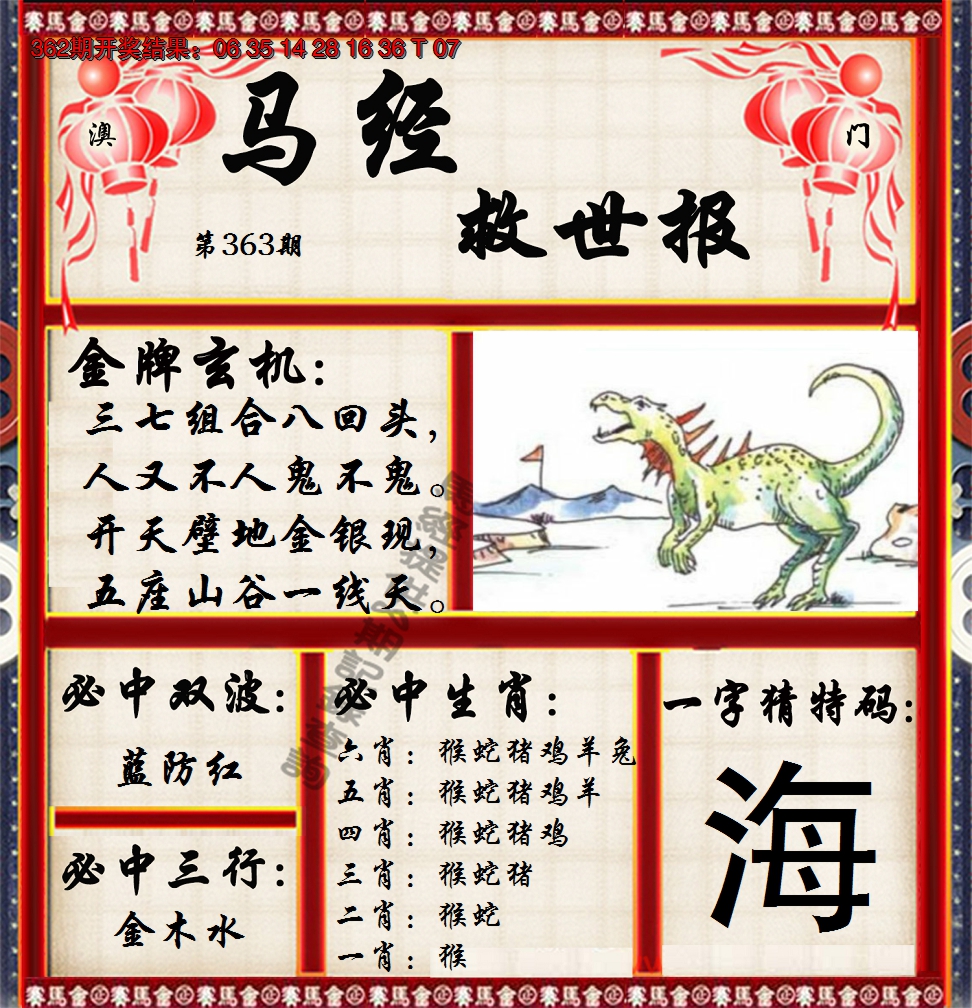 赛馬會
362期开奖结果：06 35 14 28 16 36 T 07
澳
门
马经
救世报
第363期
金牌玄机：
三七组合八回头，
人又不人鬼不鬼。
开天壁地金银现，
五座山谷一线天。
必中双波：
蓝防红
必中三行：
金木水
必中生肖：
六肖：猴蛇猪鸡羊兔
五肖：猴蛇猪鸡羊
四肖：猴蛇猪鸡
三肖：猴蛇猪
二肖：猴蛇
一肖：猴
一字猜特码：
海